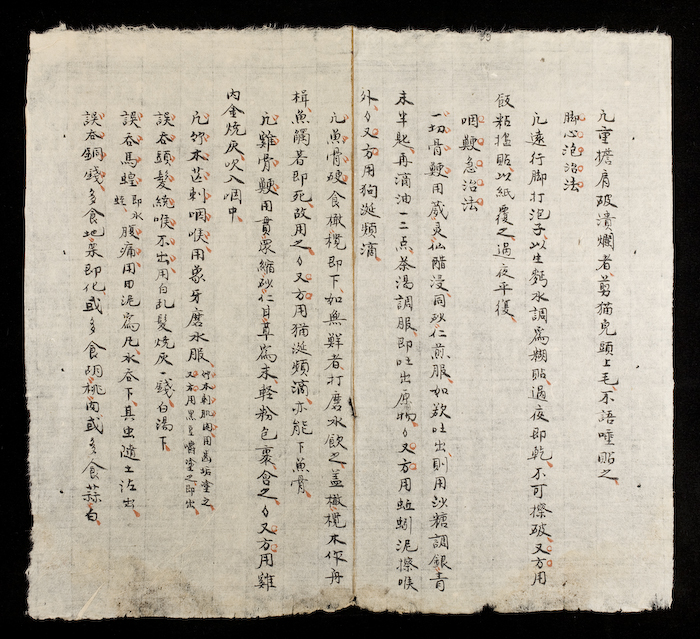 凢重擔肩破潰爛者剪猫兒頭上毛不語唾貼之
脚心泡治法
凢遠行脚打泡子以生麪水調為糊貼過夜即乾不可擦破又方用
飯粘搵貼以紙覆之過夜平復
咽鯁急治法
一切骨鯁用葳灵仙醋浸同砂仁煎服如欲吐出則用沙糖調銀青
末半匙再滴油一二点茶湯調服即吐出原物〻又方用蚯蚓泥擦喉
外〻又方用狗涎頻滴
凢魚骨硬食橄欖即下如無鮮者打磨水飲之盖橄欖木作舟
楫魚觸著即死故用之〻又方用猫涎頻滴亦能下魚骨
凢雞骨鯁用貫眾縮砂仁甘草為末輕粉包裹含之〻又方用雞
內金燒灰吹入咽中
凢竹木芒刺咽喉用象牙磨水服竹木刺肌肉用為垢塗之
又方用黑豆嚼塗之即出
誤吞頭髮繞喉不出用白乱髮燒灰一錢白湯下
誤吞馬蝗即水蛭腹痛用田泥為凡水吞下其虫隨土活出
誤吞銅錢多食地栗即化或多食胡桃肉或多食蒜白